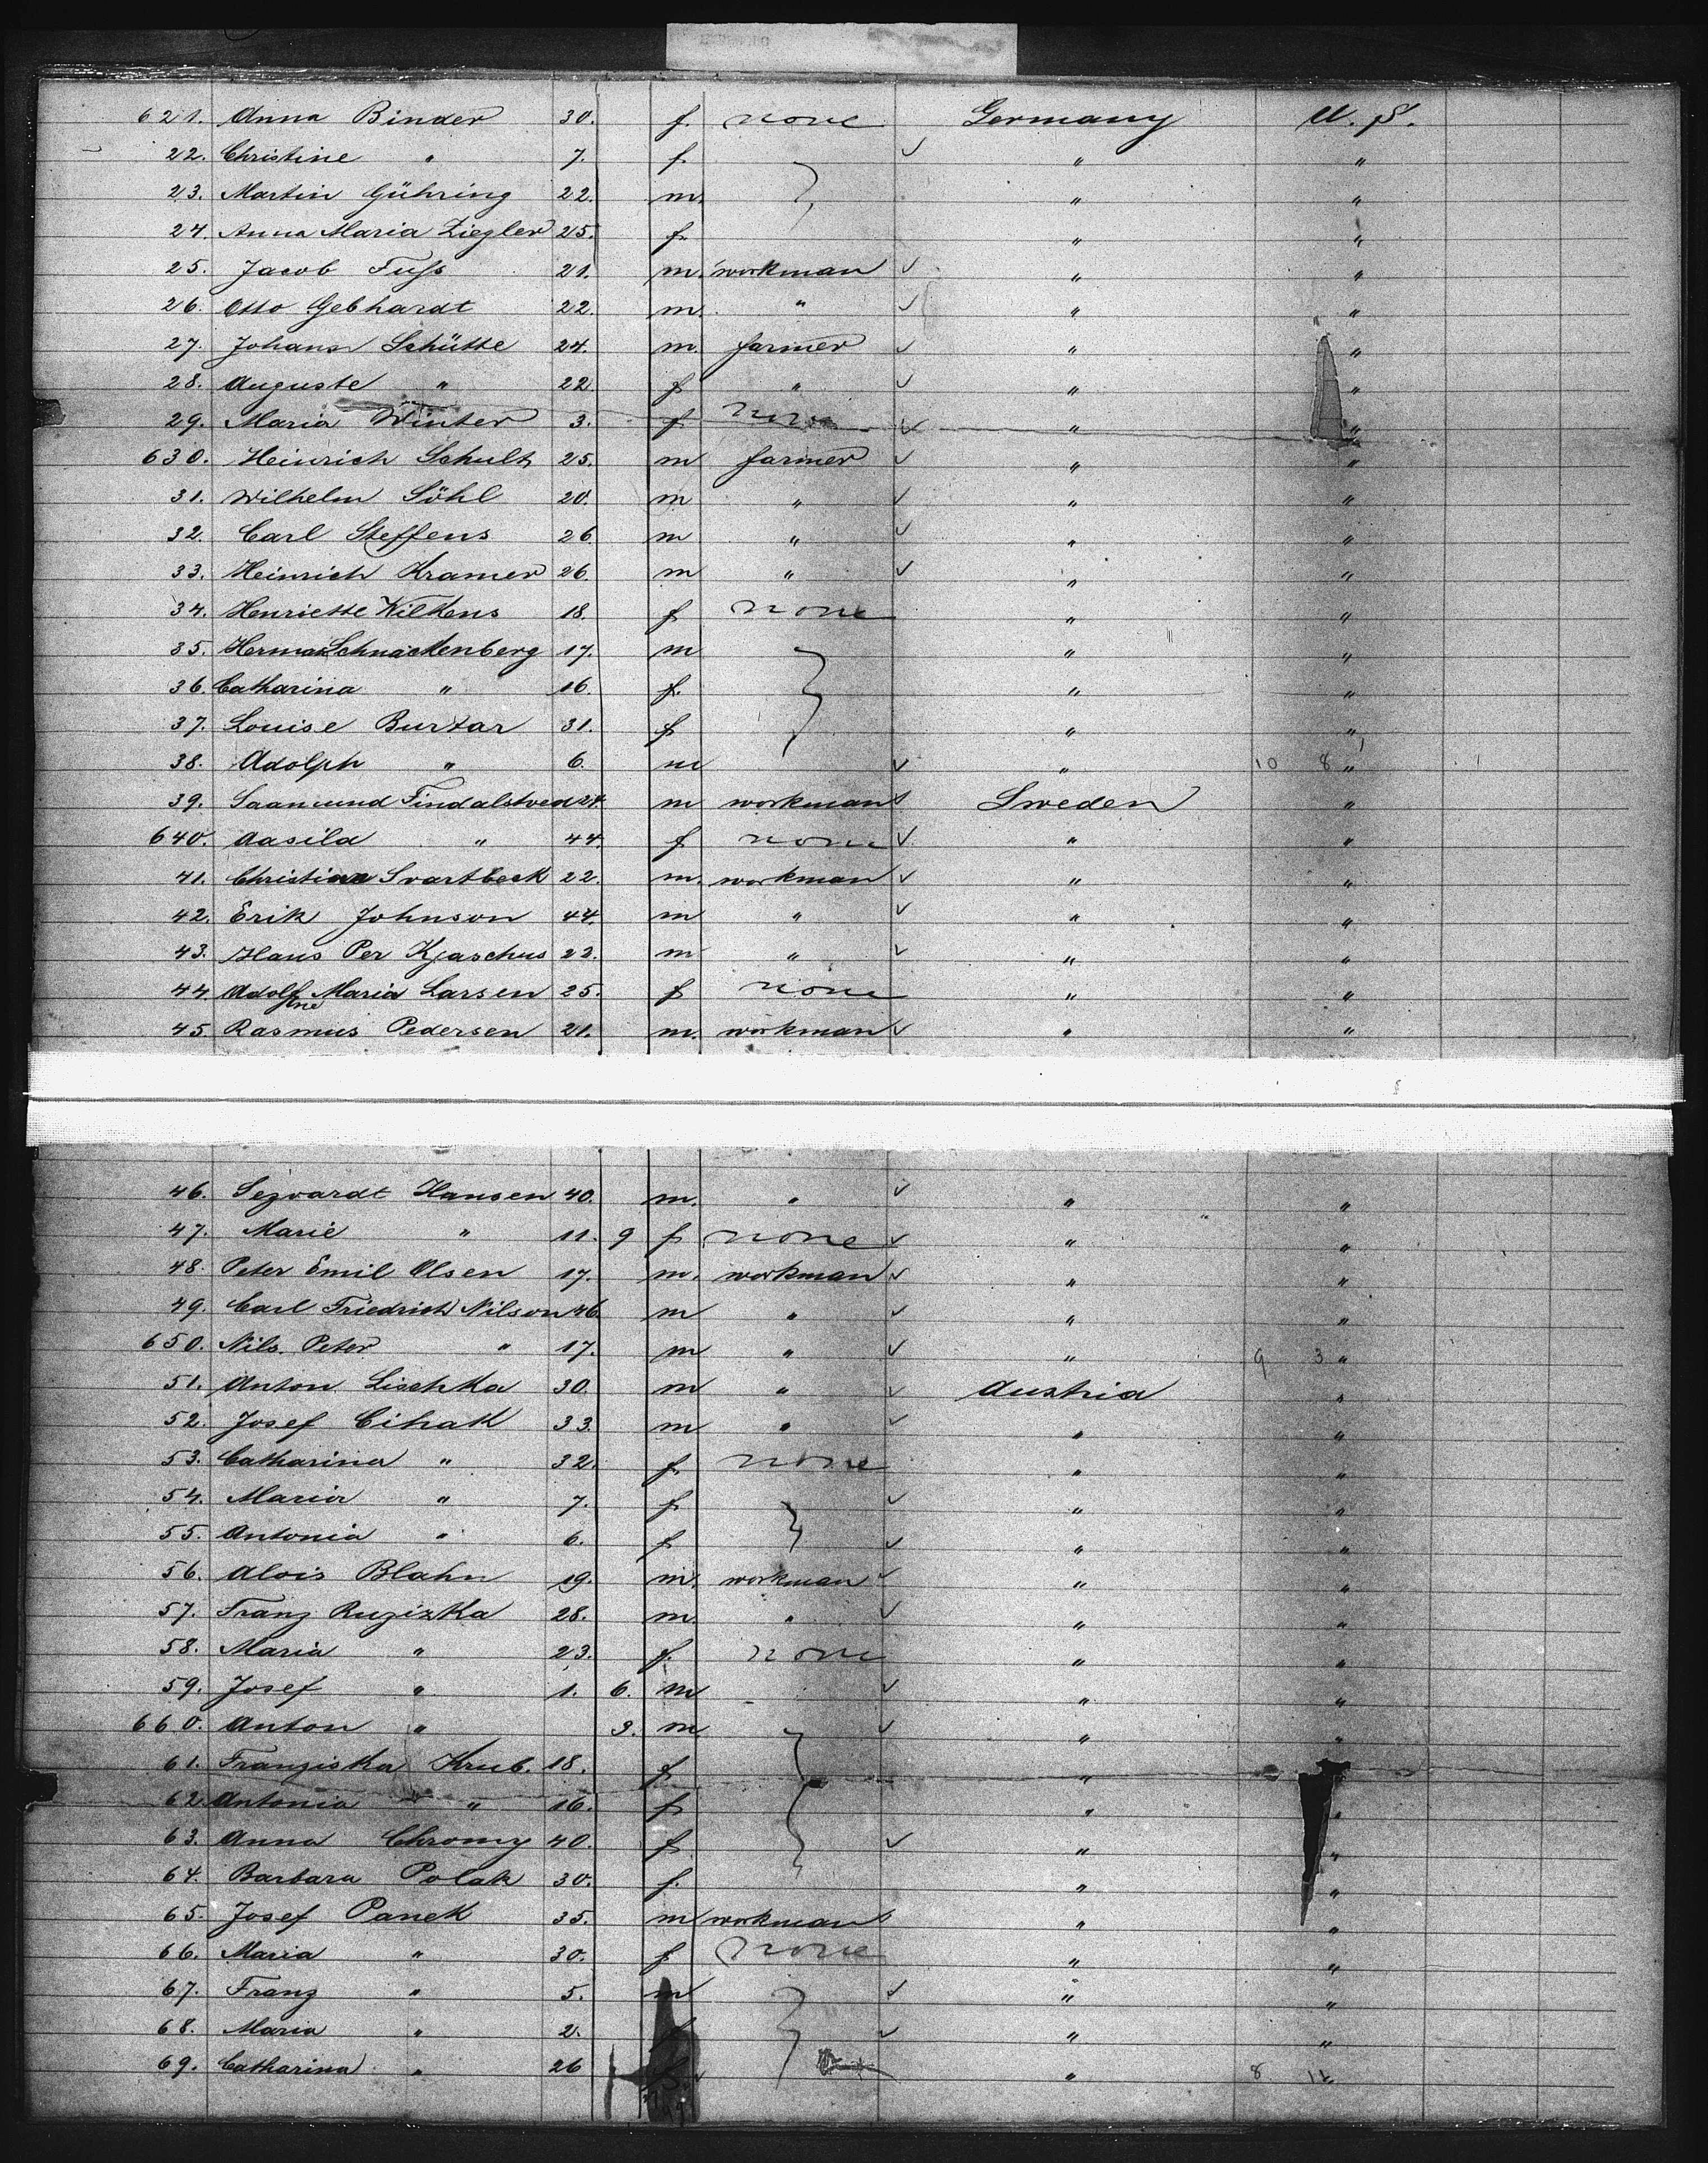 621. Anna Binder 30. f. none Germany U. S.
22. Christine " 7. f. ✓ " "
23. Martin Gühring 22. m. } " "
24. Anna Maria Ziegler 25. f. " "
25. Jacob Fuss 21. m. workman ✓ " "
26. Otto Gebhardt 22. m. " ✓ " "
27. Johann Schütte 24. m. farmer ✓ " "
28. Auguste " 22. f " ✓ " "
29. Maria Winter 3. f. none ✓ " "
630. Heinrich Schult 25. m farmer ✓ " "
31. Wilhelm Söhl 20. m " ✓ " "
32. Carl Steffens 26. m " ✓ " "
33. Heinrich Kramer 26. m " ✓ " "
34. Henriette Wilkens 18. f none " "
35. Herman Schnackenberg 17. m " "
36. Catharina " 16. f. } " "
37. Louise Burtar 31. f " "
38. Adolph " 6. m ✓ " 10 8 "
39. Saamund Findalstved 24. m workman ✓ Sweden "
640. Aasild " 44. f none ✓ " "
41. Christian Svartbeck 22. m. workman ✓ " "
42. Erik Johnson 44. m " ✓ " "
43. Hans Per Kjaschus 22. m " ✓ " "
44. Adolfine Maria Larsen 25. f none " "
45. Rasmus Pedersen 21. m. workman ✓ " "
46. Segvardt Hansen 40. m. " ✓ " "
47. Marie " 11. 9 f none ✓ " "
48. Peter Emil Olsen 17. m. workman ✓ " "
49. Carl Friedrich Nilson 46 m " ✓ " "
650. Nils Peter " 17. m " ✓ " 9 3 "
51. Anton Lischka 30. m " ✓ Austria "
52. Josef Cihak 33. m " ✓ " "
53. Catharina " 32. f. none " "
54. Maria " 7. f } ✓ " "
55. Antonia " 6. f ✓ " "
56. Alois Blahn 19. m. workman ✓ " "
57. Franz Ruzizka 28. m. " ✓ " "
58. Maria " 23. f. none " "
59. Josef " 1. 6. m ✓ " "
660. Anton " 9. m. ✓ " "
61. Franziska Krub. 18. f } " "
62. Antonia " 16. f } " "
63. Anna Chromy 40. f ✓ " "
64. Barbara Polak 30. f. " "
65. Josef Panek 35. m workman ✓ " "
66. Maria " 30. f none " "
67. Franz " 5. m ✓ " "
68. Maria " 2. } ✓ " "
69. Catharina " 26 " 8 12